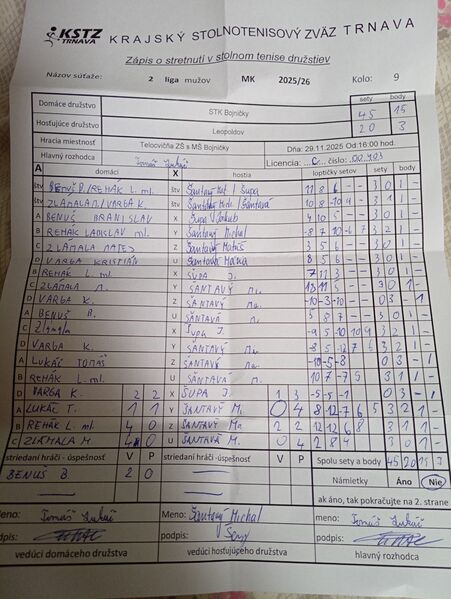 KSTZ
TRNAVA
KRAJSKÝ STOLNOTENISOVÝ ZVÄZ TRNAVA
Zápis o stretnutí v stolnom tenise družstiev
Názov súťaže: 2 liga mužov MK 2025/26 Kolo: 9
sety body
Domáce družstvo STK Bojničky 45 15
Hosťujúce družstvo Leopoldov 20 3
Hracia miestnosť Telocvičňa ZŠ s MŠ Bojničky Dňa: 29.11.2025 Od 16:00 hod.
Hlavný rozhodca Tomáš Lukáč Licencia: C číslo:
A domáci X hostia loptičky setov sety body
štv BENUŠ B./REHÁK L. ml. štv / Šupa 11 8 6 - - 3 0 1 -
štv ZLÁMALA M./VARGA K. štv 3 1 1 -
A BENUŠ BRANISLAV X Šupa Jakub 4 10 5 - - 3 0 1 -
B REHÁK LADISLAV ml. Y Šántavý Michal 3 2 1 -
C ZLÁMALA MATEJ Z Šántavý Matúš 3 5 6 - - 3 0 1 -
D VARGA KRISTIÁN U Šántavá 8 5 6 - - 3 0 1 -
B REHÁK L. ml. X ŠUPA J. 7 11 3 - - 3 0 1 -
C ZLÁMALA M. Y ŠANTAVÝ Mi. 3 0 1 -
D VARGA K. Z ŠANTAVÝ Ma. -10 -3 -10 - - 0 3 - 1
A BENUŠ B. U ŠANTAVÁ M. 5 8 7 - - 3 0 1 -
C Zlámala X Šupa J. -9 5 -10 10 9 3 2 1 -
D VARGA K. Y ŠANTAVÝ M. 3 2 1 -
A LUKÁČ TOMÁŠ Z ŠANTAVÝ M. -10 -5 -8 - - 0 3 - 1
B REHÁK L. ml. U ŠANTAVÁ M. 10 7 -7 5 - 3 1 1 -
D VARGA K. 2 2 X ŠUPA J. 1 3 -5 -5 -1 0 3 - 1
A LUKÁČ T. 1 1 Y ŠANTAVÝ Mi. 0 4 8 -12 -7 6 5 3 2 1 -
B REHÁK L. ml. 4 0 Z ŠANTAVÝ Ma. 2 2 3 1 1 -
C ZLÁMALA M. 4 0 U ŠANTAVÁ M. 0 4 2 8 4 3 0 1 -
striedaní hráči - úspešnosť V P striedaní hráči - úspešnosť V P Spolu sety a body 45 20 15 3
BENUŠ B. 2 0 Námietky Áno Nie
ak áno, tak pokračujte na 2. strane
Meno: Tomáš Lukáč Meno: Šántavý Michal meno: Tomáš Lukáč
podpis: podpis: podpis:
vedúci domáceho družstva vedúci hosťujúceho družstva hlavný rozhodca